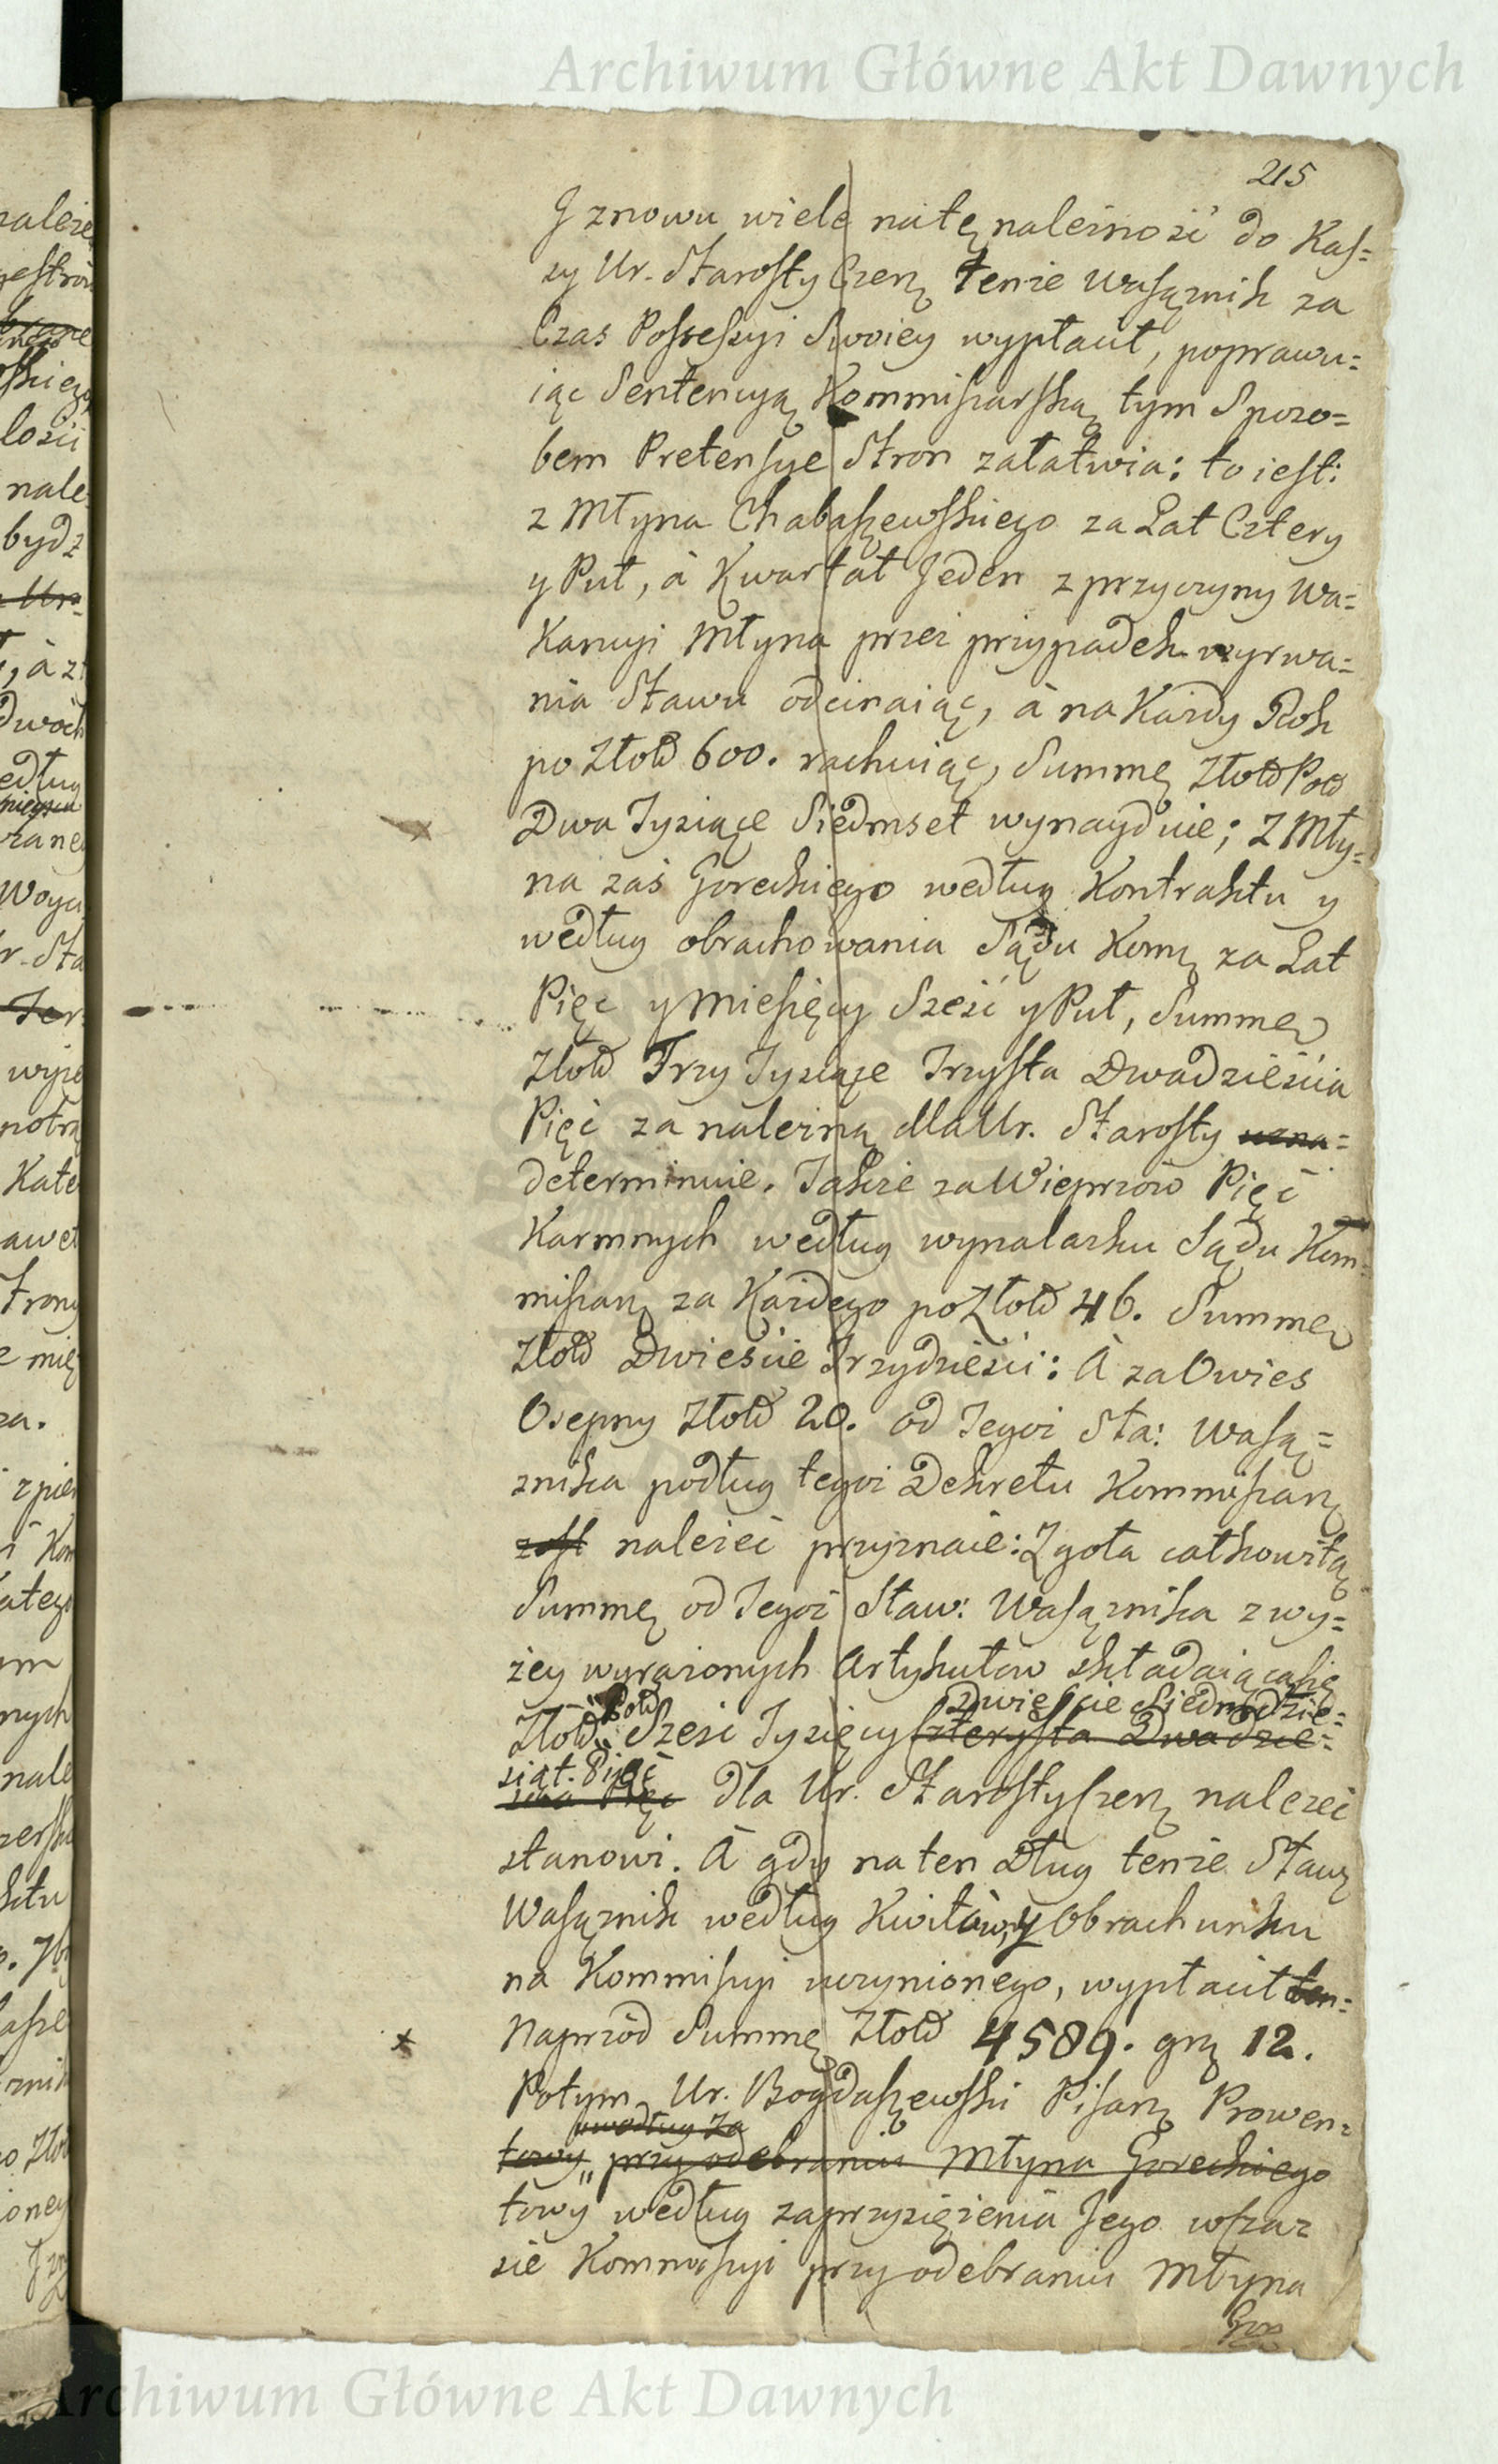 Archiwum Główne Akt Dawnych
215
J znowu wiele natę należność do Kas=
sy Ur. Starosty Czerę tenże Wasążnik za
Czas Possessyi Swoiey wypłacił, poprawu=
iąc Sentencyą Kommissarską tym Sposo=
bem Pretensye Stron załatwia: to iest:
z Młyna Chabaszewskiego za Lat Cztery
y Puł, à Kwartał Jeden z przyczyny Wa=
kancyi Młyna przez przypadek wyrwa=
nia Stawu odcinaiąc, à na Każdy Rok
po Złotð 600. rachuiąc, Summę Złotð Polð
Dwa Tysiące Siedmset wynayduie; Z Mły=
na zaś Goreckiego według Kontraktu y
według obrachowania Sądu Komę za Lat
Pięc y Miesięcy Sześć y Puł, Summę
Złotð Trzy Tysiące Trzysta Dwadzieścia
Pięć za należną dla Ur. Starosty uzna=
determinuie. Także za Wieprzów Pięć
Karmnych według wynalasku Sądu Kom=
missarę za Każdego po Złotð 46. Summę
Złotð Dwieście Trzydzieści: À za Owies
Osepny Złotð 20. od Tegoż Sła: Wasą=
żnika podług tegoż Dekretu Kommissarę
zost należeć przyznaie: Zgoła całkowitą
Summę od Tegoż Sław: Wasążnika z wy=
żey wyrażonych Artykułow składaiącą się
Polð dwieście Siedmdzie=
Złotð Sześć Tysięcy Czterysta Dwadzie=
siąt. Pięć
scia Pięc dla Ur. Starosty Czerę należeć
stanowi. À gdy na ten Dług tenże Sławę
Wasążnik według Kwitów, y Obrachunku
na Kommissyi uczynionego, wypłacił ten=
Naprzód Summę Złotð 4589. grę 12.
Potym Ur. Bogdaszewski Pisarę Prowen=
według za
towy przy odebraniu Młyna Goreckiego
towy według zaprzysiężenia Jego w Czaz
sie Kommissyi przy odebraniu Młyna
Gor
Archiwum Główne Akt Dawnych